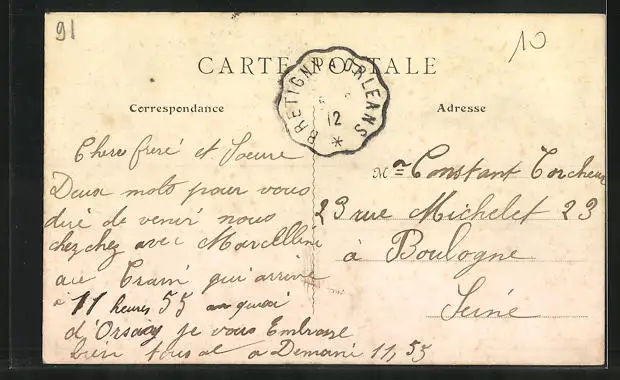 91
10
CARTE POSTALE
BRETIGNY A ORLEANS
12
Correspondance
Adresse
Chere freré et Soeure
Deux mots pour vous
diré de venir nous
cherchez avec Marcelline
au Tram qui arrive
a 11 heures 55 au quai
d'Orsay je vous Embrasse
bien tous a Demain 11,55
Mr Constant Torcheux
23 rue Michelet 23
à Boulogne
Seine